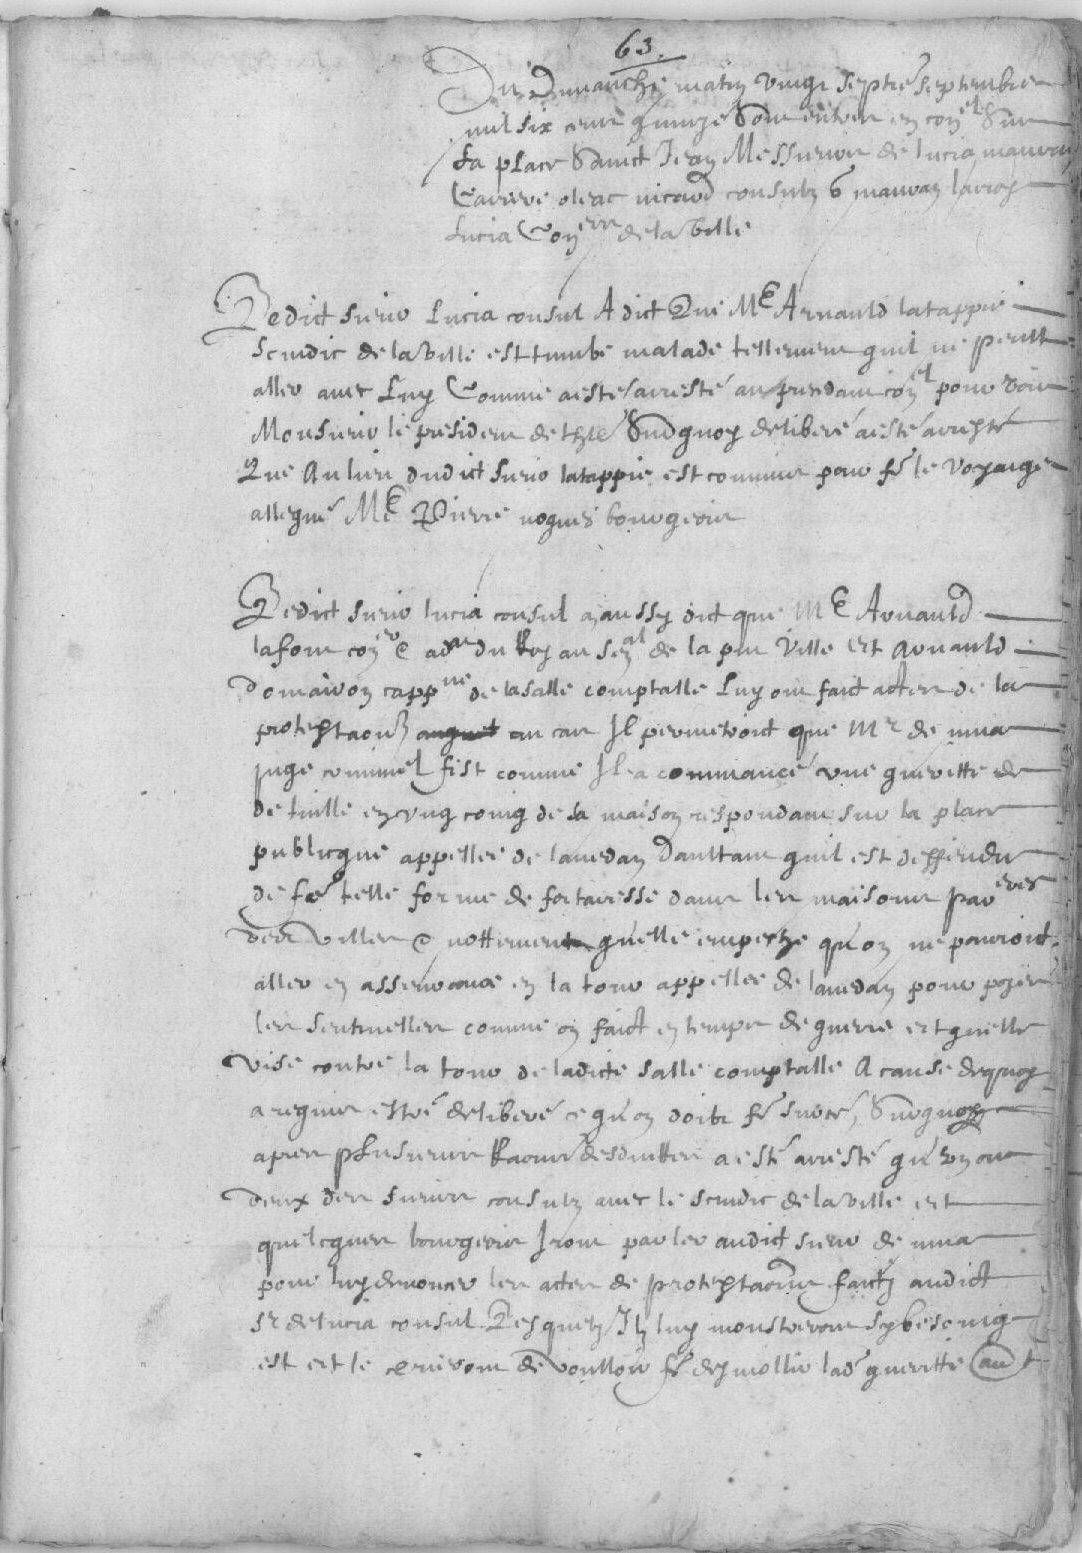 63.
Du Dimanche matin vingt septie septembre
mil six cens quinze Sont entrés en con^el Sur
La place Sainct Jean Messieurs de lucia mauran
Carrere oleac nicard consulz & mauran
Lucia Con^ers de la ville
Ledict sieur Lucia consul A dict Que M^e Arnauld latappie
scindic de la ville est tumbé malade tellement quil ne peult
aller avec Luy Comme a esté arresté au precedant con^el pour voir
Monsieur le president de Surquoy deliberé a esté arresté
Que Au lieu dudict sieur latappie est commis pour fe le voyaige
allegué M^e Pierre nogues bourgeois
Ledict sieur lucia consul a aussy dict que M^e Arnauld
lafont con^er & ad^at du Roy au sen^al de la pnt ville et Arnauld
domairon capp^ne de la salle comptalle Luy ont faict actes de la
protestaon au cas Il permetroit que M^r de mua
juge criminel fist comme Il a commancé une gueritte de
de tuille en ung coing de sa maison respondant sur la place
publicque appellee de lavedan Daultant quil est deffendu
de fe telle forme de fortaresse dans les maisons par^eres
des villes & nottement quelle empesche qu'on ne pourroit
aller en asseurance en la tour appellee de lavedan pour poser
les sentinelles comme on faict en temps de guerre et quelle
vise contre la tour de ladicte salle comptalle A cause dequoy
a requis estre deliberé ce qu'on doibt fe sur ce, Surquoy
apres plusieurs Raons desduittes a esté arresté qu'un ou
deux des sieurs consulz avec le scindic de la ville et
quelques bourgeois Iront parler audict sieur de mua
pour luy denoncer les actes de protestaons faictz audict
s^r de lucia consul Lesquelz Ilz luy monstreront sy besoing
est et le prieront de voulloir fe desmollir lad gueritte au t